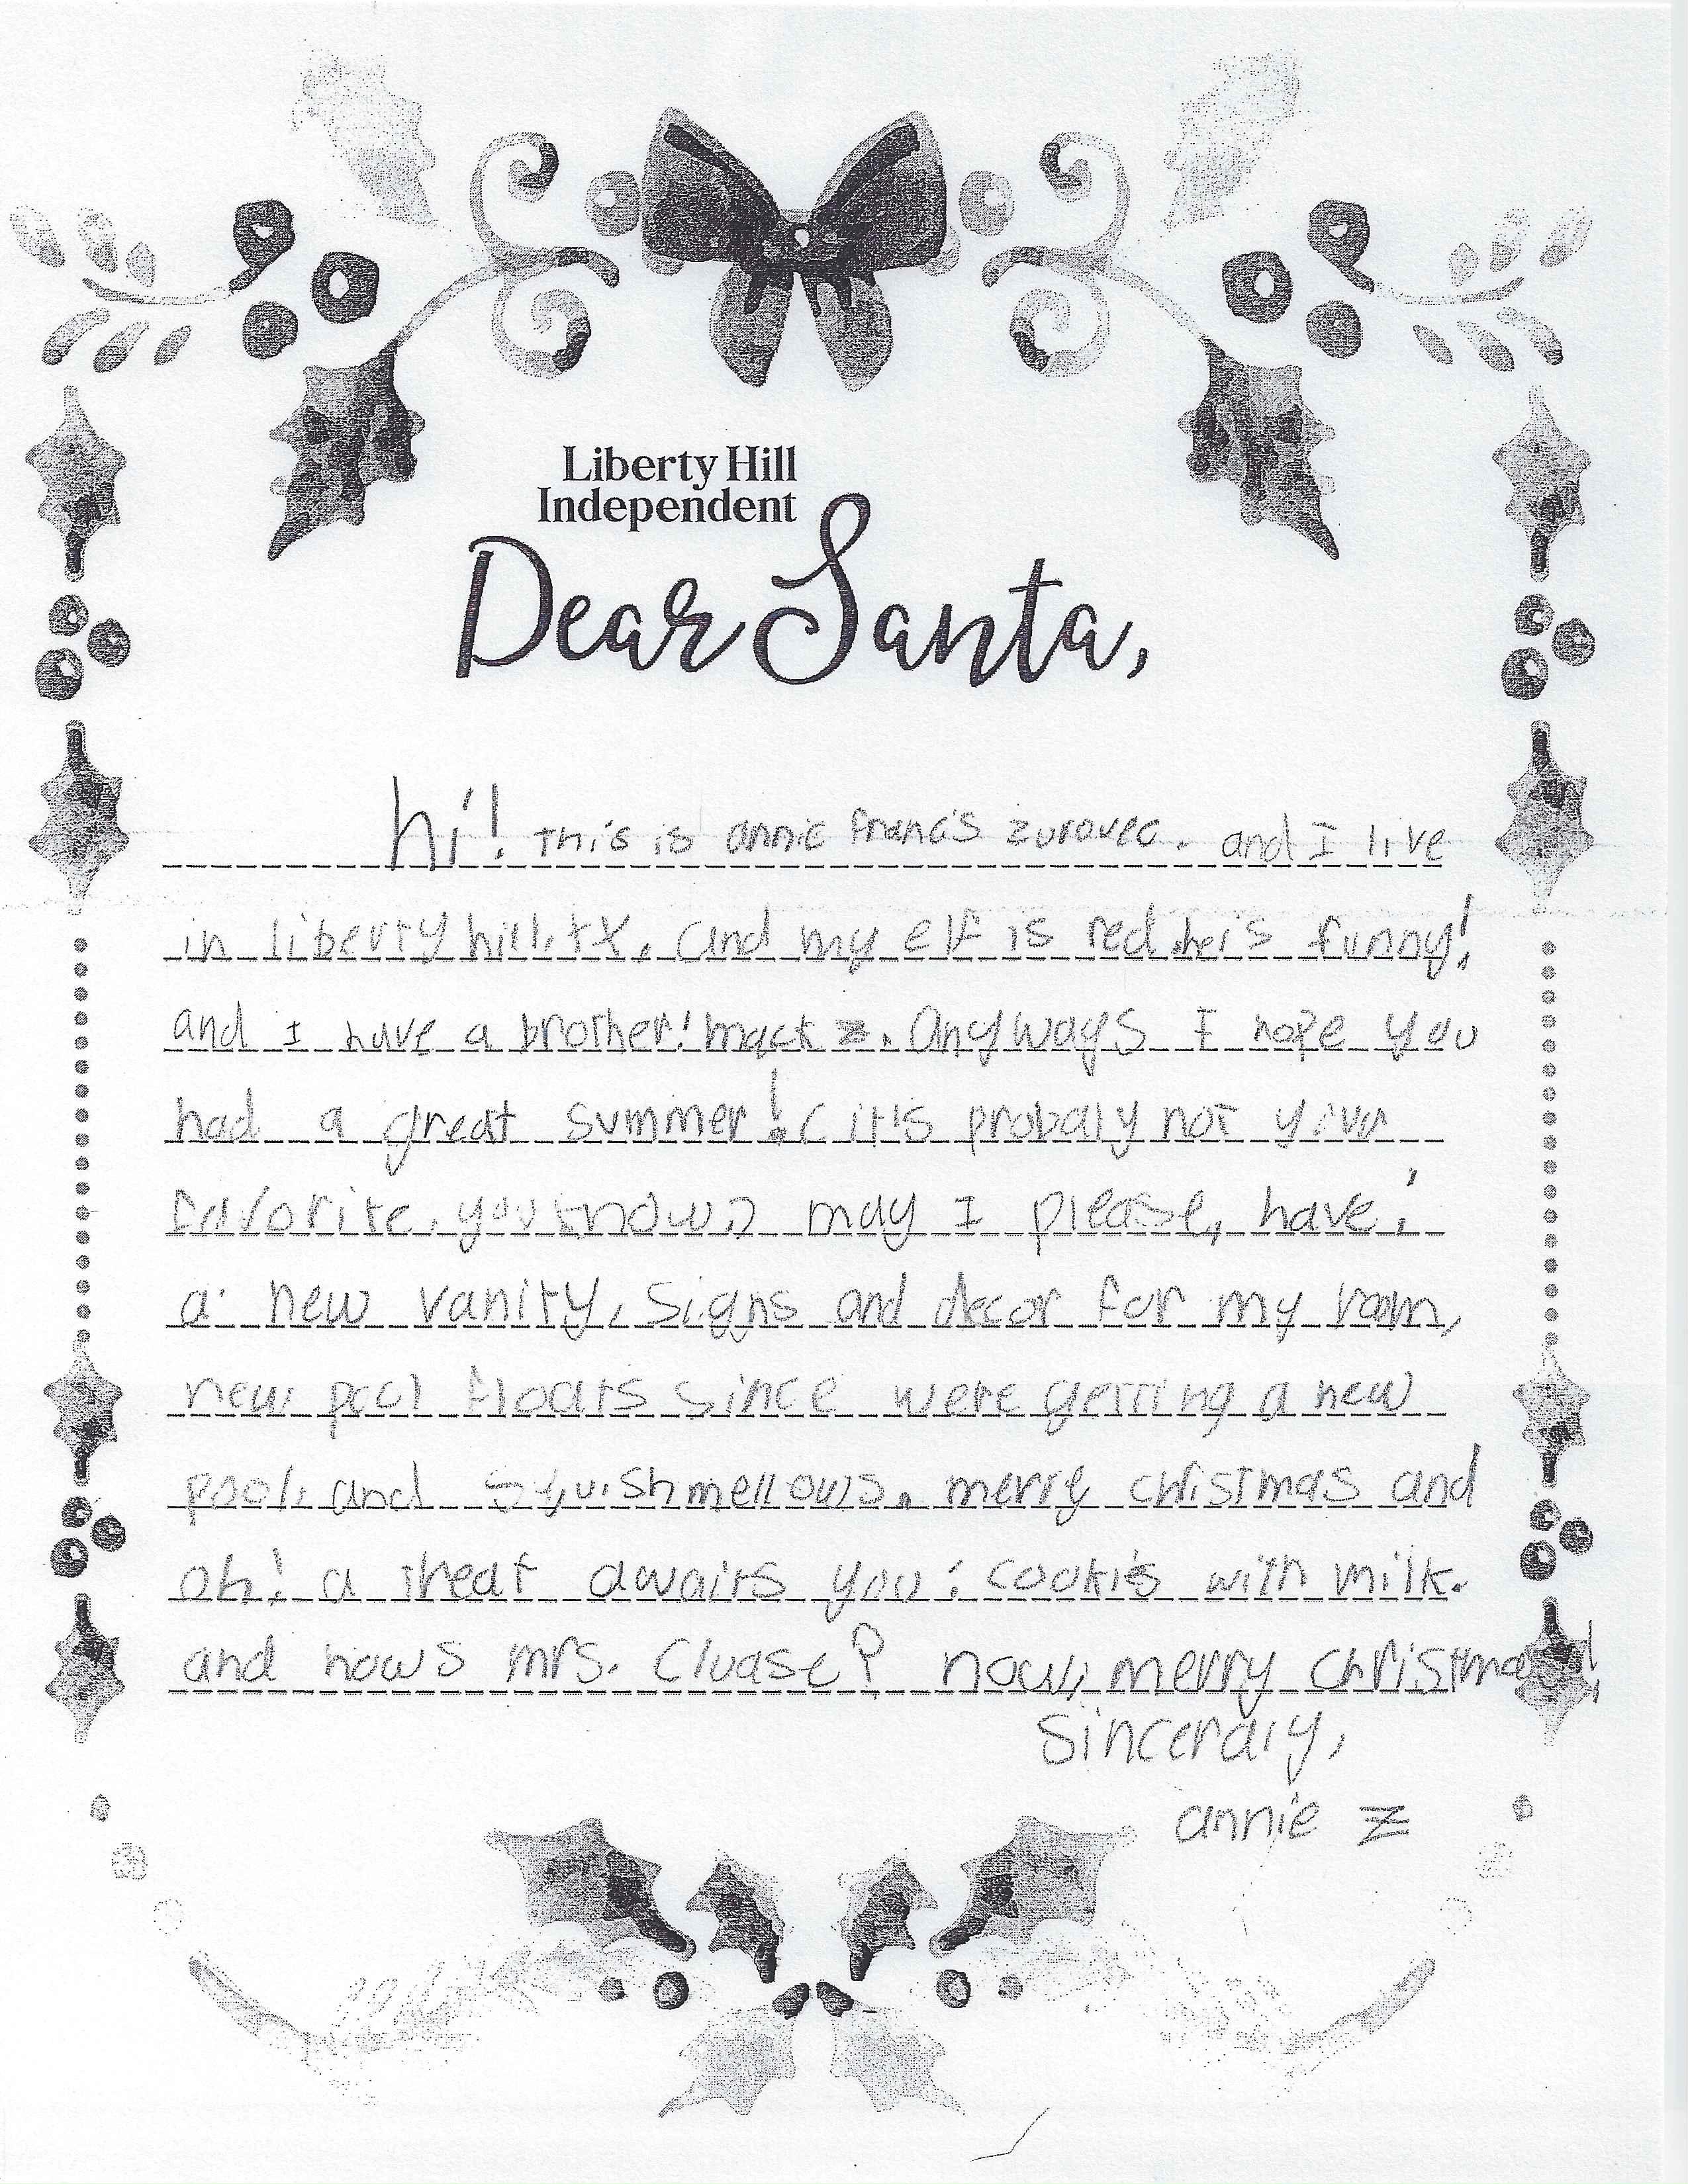 Liberty Hill
Independent
Dear Santa,
hi! This is annie francis zurovec. and I live
in liberty hill, tx. and my elf is red he's funny!
and I have a brother! mack z. Anyways I hope you
had a great summer! (it's probaly not your
favorite, you know) may I please, have:
a new vanity, signs and decor for my room,
new pool floats since were getting a new
pool, and squishmellows. merry christmas and
oh! a treat awaits you: cookis with milk.
and hows mrs. Cluase? now, merry christmas!
Sinceraly,
annie z